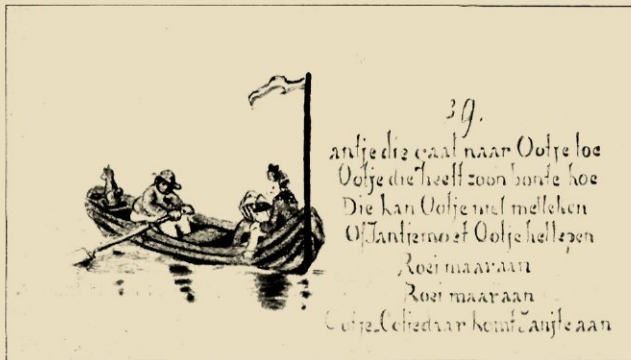 39.
antje die gaat naar Ootje toe
Ootje die heeft zoon bonte koe
Die kan Ootje niet melleken
Of Jantje moet Ootje hellepen
Roei maar aan
Roei maar aan
Ootje Ootje daar komt Janjte aan